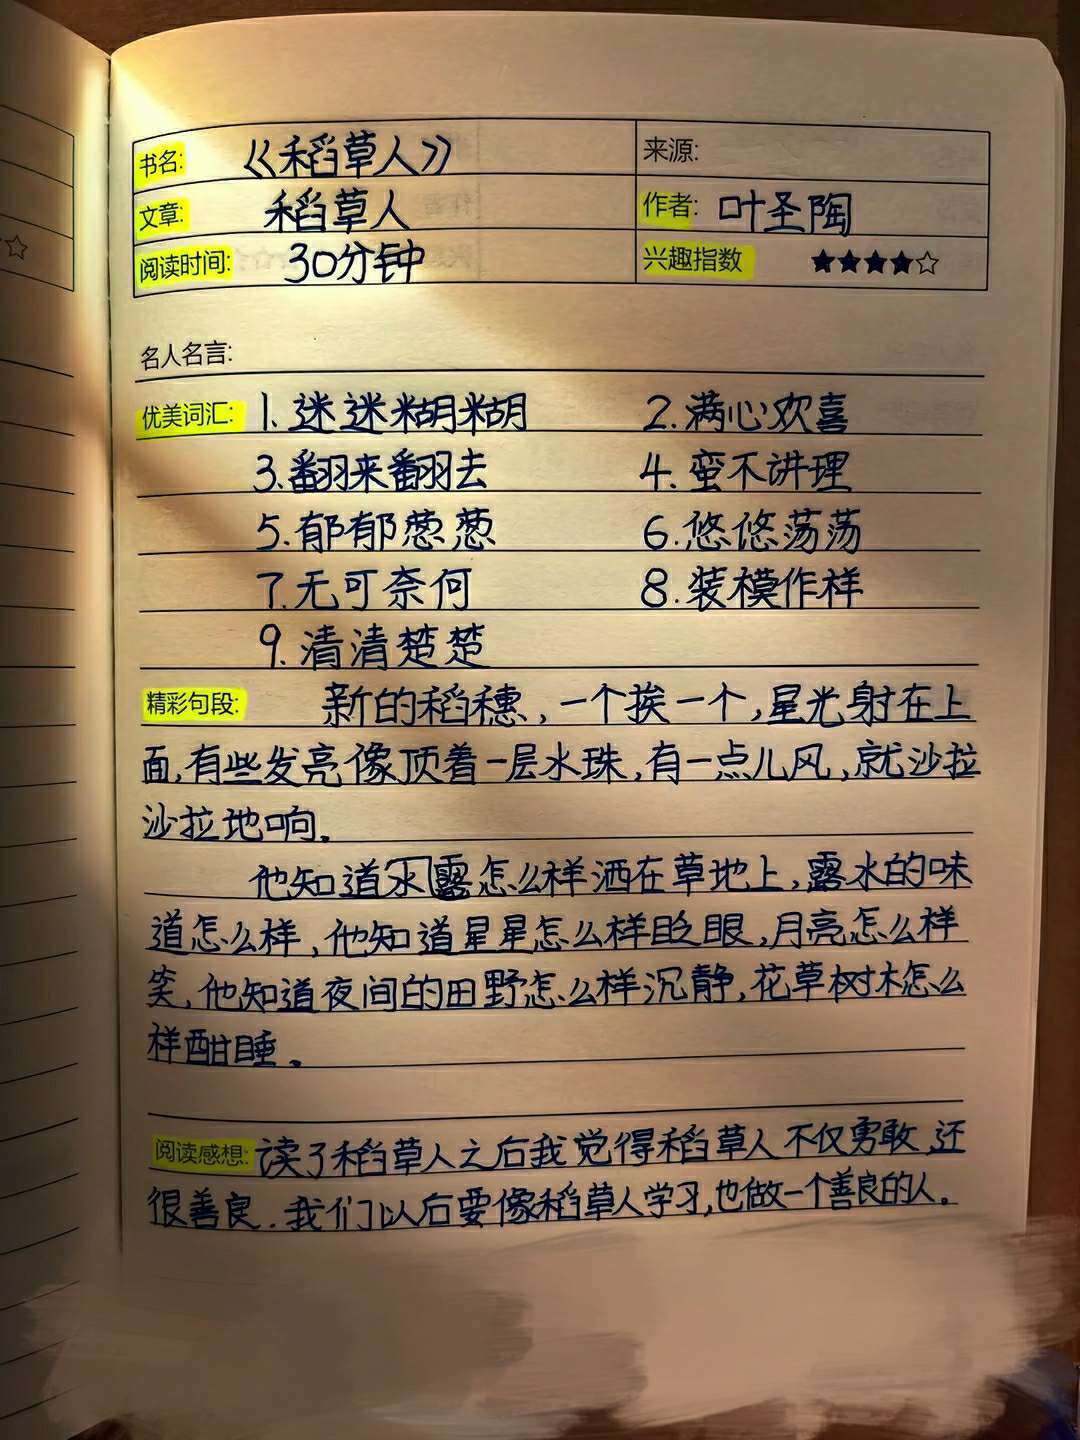 书名: 《稻草人》 来源:
文章: 稻草人 作者: 叶圣陶
阅读时间: 30分钟 兴趣指数 ★★★★☆
名人名言:
优美词汇: 1.迷迷糊糊 2.满心欢喜
3.翻来翻去 4.蛮不讲理
5.郁郁葱葱 6.悠悠荡荡
7.无可奈何 8.装模作样
9.清清楚楚
精彩句段: 新的稻穗,一个挨一个,星光射在上
面,有些发亮像顶着一层水珠,有一点儿风,就沙拉
沙拉地响。
他知道水露怎么样洒在草地上,露水的味
道怎么样,他知道星星怎么样眨眼,月亮怎么样
笑,他知道夜间的田野怎么样沉静,花草树木怎么
样酣睡。
阅读感想: 读了稻草人之后我觉得稻草人不仅勇敢,还
很善良.我们以后要像稻草人学习,也做一个善良的人。